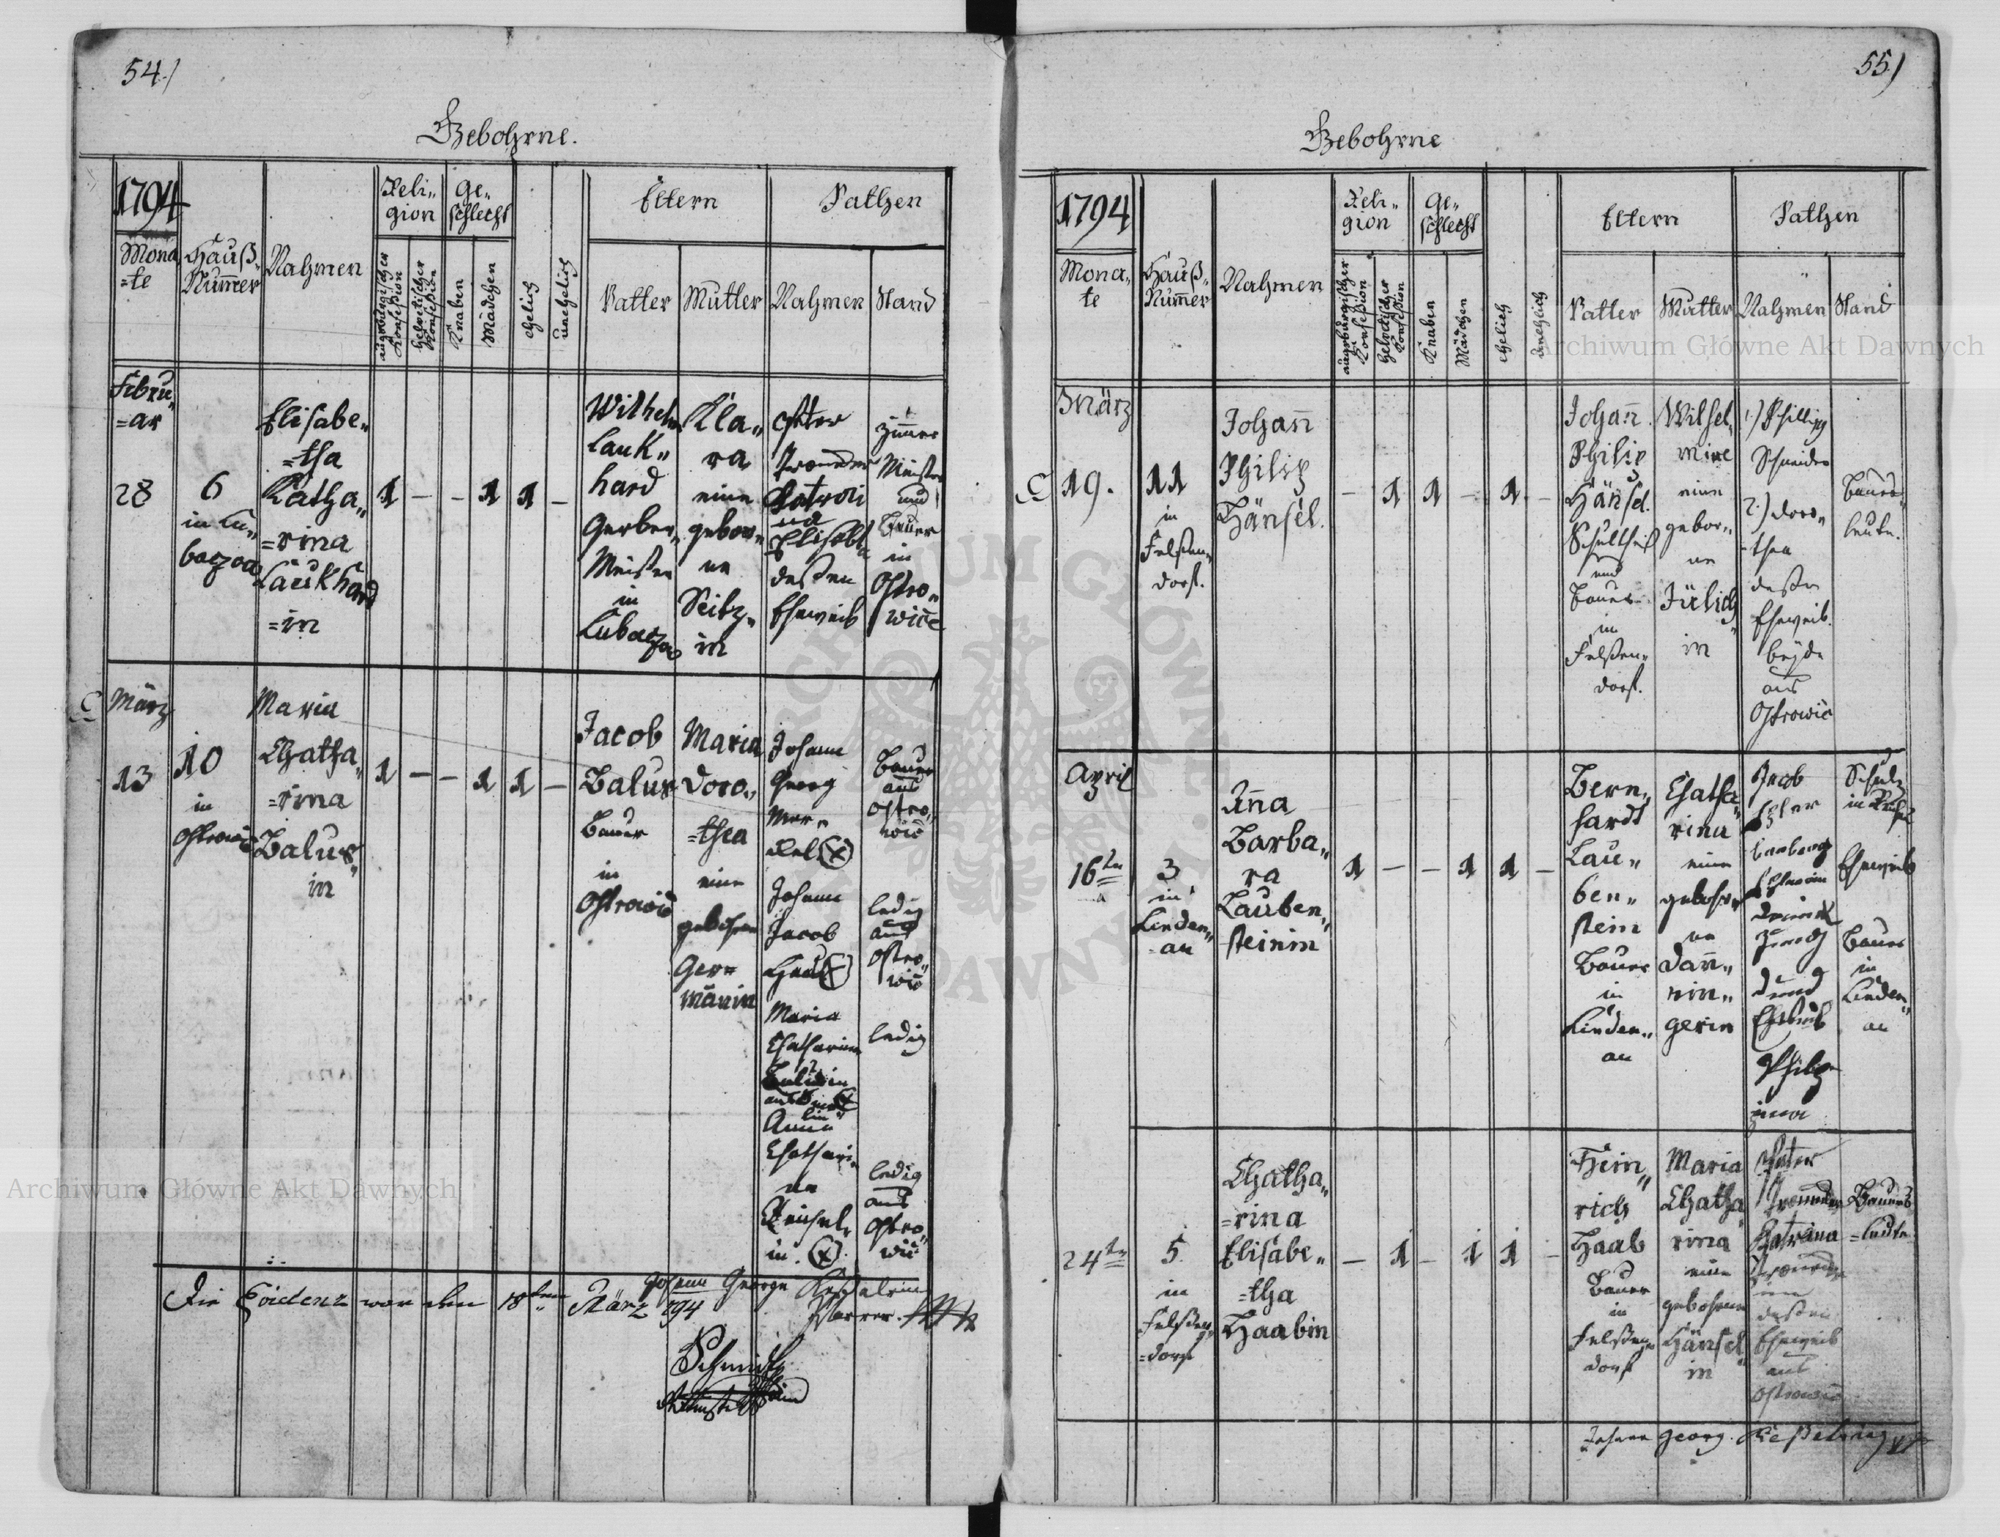 54./
Gebohrne.
1794
Mona
=te
Hauß-
Num̄er
Nahmen
Reli-
gion
augsburgischer
Konfeßion
helvetischer
Konfeßion
Ge-
schlecht
Knaben
Mädchen
ehelich
unehelich
Eltern
Vatter
Mutter
Pathen
Nahmen
Stand
Febru-
=ar
28
6
in Lu-
baczow
Elisabe-
=tha
Katha-
=rina
Laukhard
=in
1 — — 1 1 —
Wilhelm
Lauk-
hard
Gerber-
Meister
in
Lubaczow
Kla-
ra
eine
gebor-
ne
Seitz-
in
Peter
und
Elisabet
deßen
Eheweib
Zim̄er
Meister
und
Bauer
in
Ostro-
wice
März
13
10
in
Ostrowic
Maria
Chatha-
=rina
Balus-
in
1 — — 1 1 —
Jacob
Balus
Bauer
in
Ostrowic
Maria
Doro-
=thea
eine
gebohrne
Ger-
mänin
Johann
Georg
Mer-
kel (x)
Johann
Jacob
(x)
Maria
Chatharina
Anna
Chathari-
na
in (x)
Bauer
aus
Ostro-
wic
ledig
aus
Ostro-
wic
ledig
ledig
aus
Ostro-
wic
Die war den 18ten März 794
Johann George
Pfarrer
Schmidt
55/
Gebohrne
1794
Mona-
te
Hauß-
Num̄er
Nahmen
Reli-
gion
augsburgischer
Konfeßion
helvetischer
Konfeßion
Ge-
schlecht
Knaben
Mädchen
ehelich
unehelich
Eltern
Vatter
Mutter
Pathen
Nahmen
Stand
März
19.
11
in
Felßen-
dorf.
Johan̄
Philip
Hänsel.
— 1 1 — 1 —
Johan̄
Philip
Hänsel
Schultheiß
und
Bauer
in
Felßen-
dorf.
Wilhel-
mine
eine
gebor-
ne
Jülich
in
1.) Philipp
Schneider
2.) Doro-
thea
deßen
Eheweib.
beyde
aus
Ostrowic
Bauers-
leute.
April
16ten
3
in
Linden-
au
An̄a
Barba-
ra
Lauben-
steinin
1 — — 1 1 —
Bern-
hardt
Lau-
ben-
stein
Bauer
in
Linden-
au
Chatha-
rina
eine
gebohr-
ne
Dan̄-
nin-
gerin
Jacob
und
Eheweib
Philip-
pina
Schulz
Eheweib
Bauer
in
Linden-
au
24ten
5
in
Felßen-
=dorf
Chatha-
=rina
Elisabe-
=tha
Haabin
— 1 — 1 1 —
Hein-
rich
Haab
Bauer
in
Felßen-
dorf
Maria
Chatha-
rina
eine
gebohrne
Hänsel
in
Peter
Katrina
deßen
Eheweib
aus
Ostrowic
Bauers
=leute
Johann Georg. Keßelring
Archiwum Główne Akt Dawnych
Archiwum Główne Akt Dawnych
ARCHIWUM GŁÓWNE AKT DAWNYCH